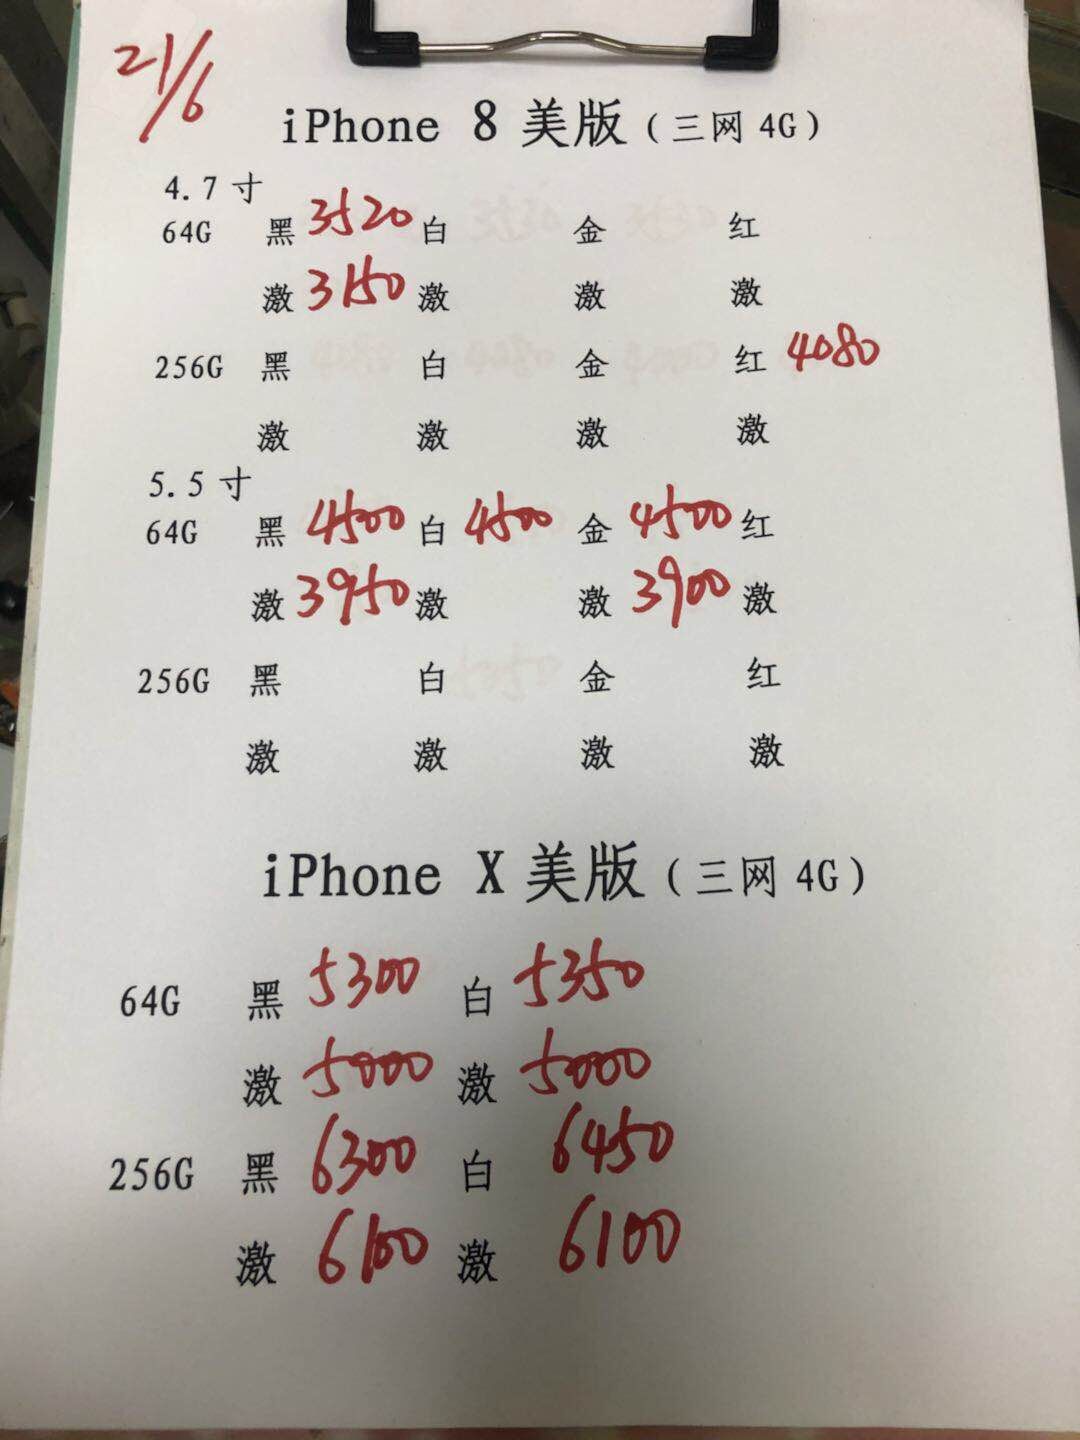 21/6
iPhone 8 美版(三网 4G)
4.7 寸
64G 黑 3520 白 金 红
激 3150 激 激 激
256G 黑 白 金 红 4080
激 激 激 激
5.5 寸
64G 黑 4500 白 4500 金 4500 红
激 3950 激 激 3900 激
256G 黑 白 金 红
激 激 激 激
iPhone X 美版(三网 4G)
64G 黑 5300 白 5350
激 5000 激 5000
256G 黑 6300 白 6450
激 6100 激 6100